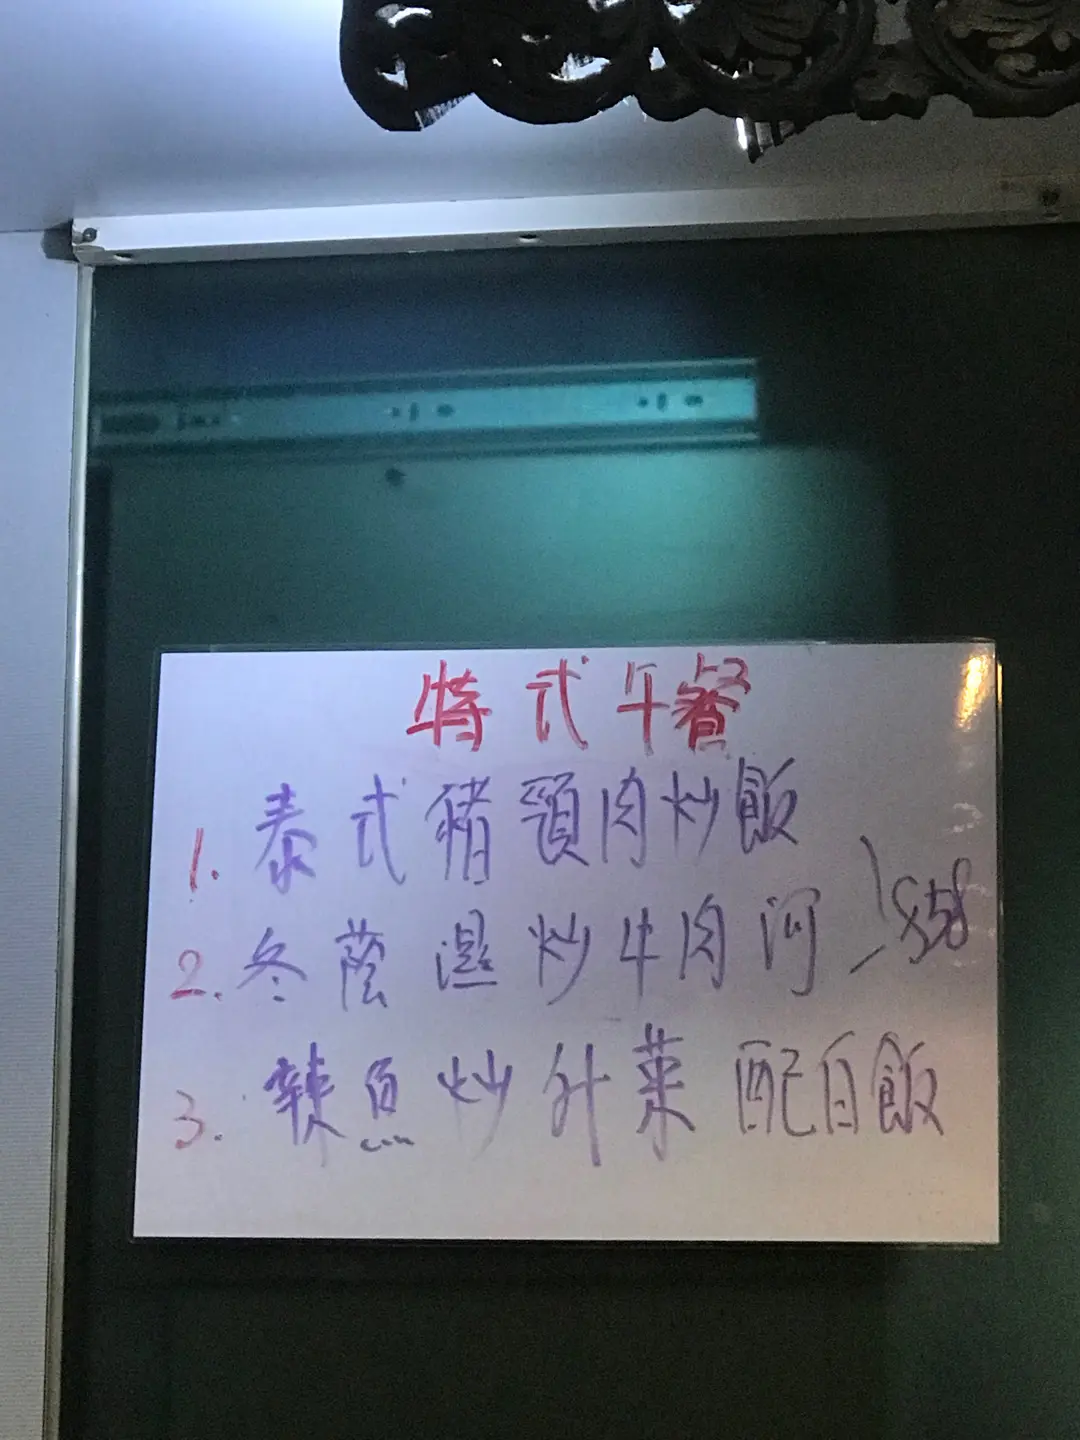 特式午餐
1. 泰式豬頸肉炒飯
2. 冬蔭濕炒牛肉河
3. 辣魚炒什菜配白飯
$58